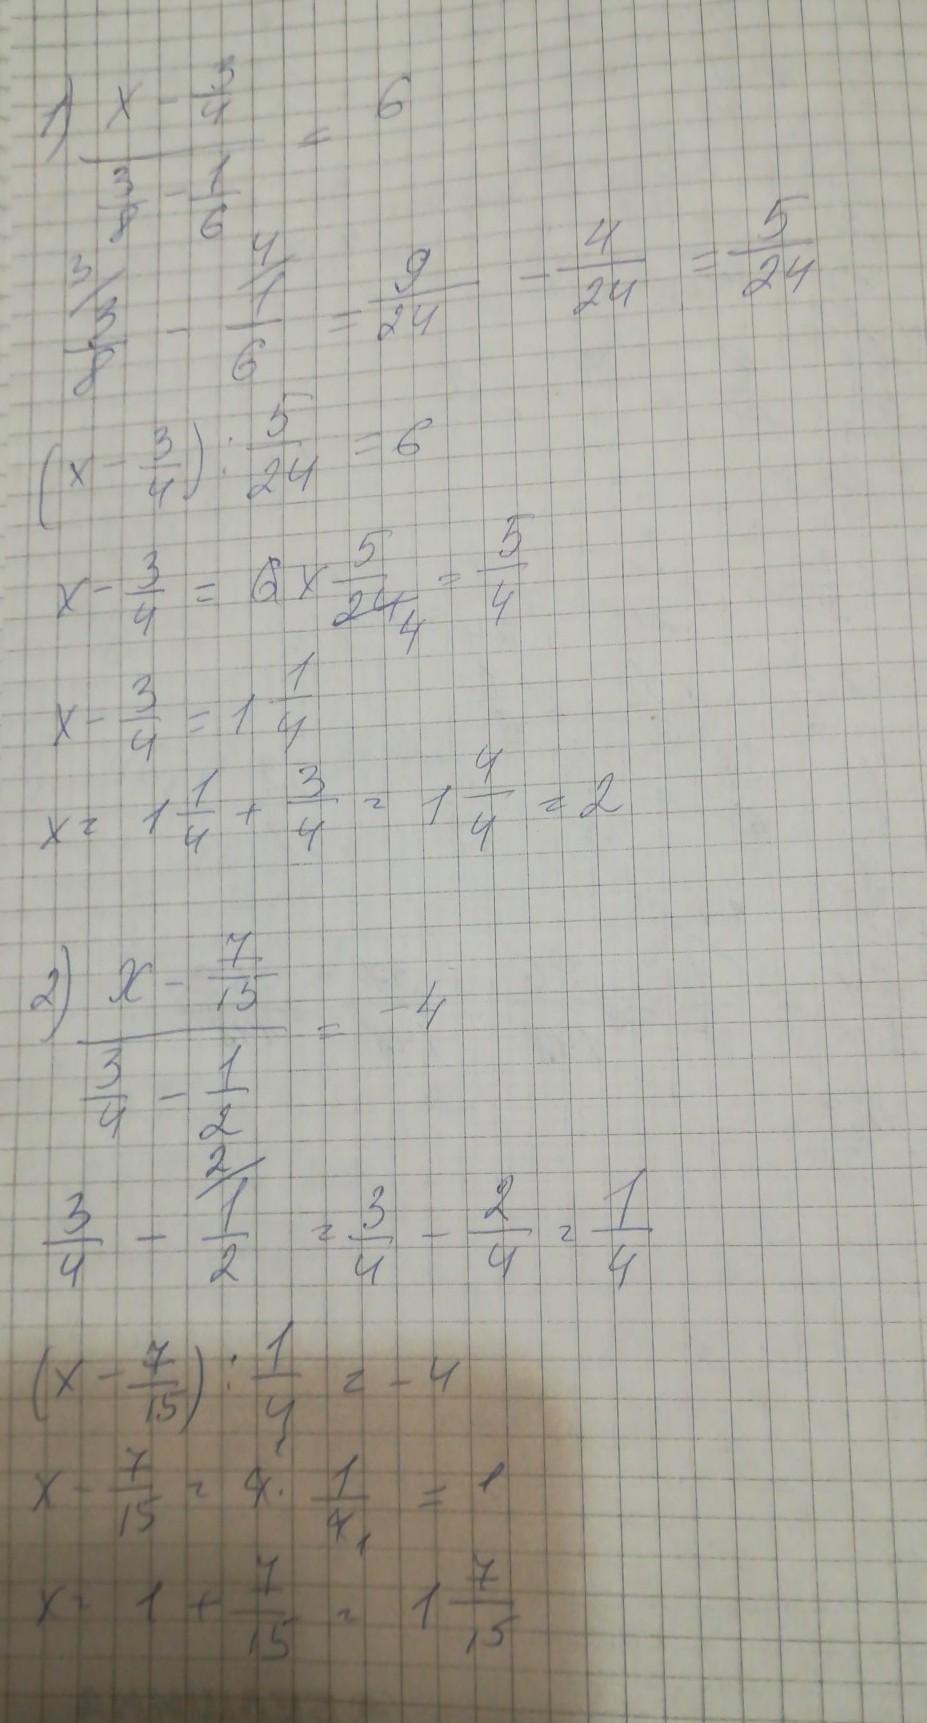 1) (x - 3/4) / (3/8 - 1/6) = 6
3/ 3/8 - 4/ 1/6 = 9/24 - 4/24 = 5/24
(x - 3/4) : 5/24 = 6
x - 3/4 = 6 x 5/24 4 = 5/4
x - 3/4 = 1 1/4
x = 1 1/4 + 3/4 = 1 4/4 = 2
2) (x - 7/15) / (3/4 - 1/2) = -4
3/4 - 2/ 1/2 = 3/4 - 2/4 = 1/4
(x - 7/15) : 1/4 = -4
x - 7/15 = 4 · 1/4 1 = 1
x = 1 + 7/15 = 1 7/15